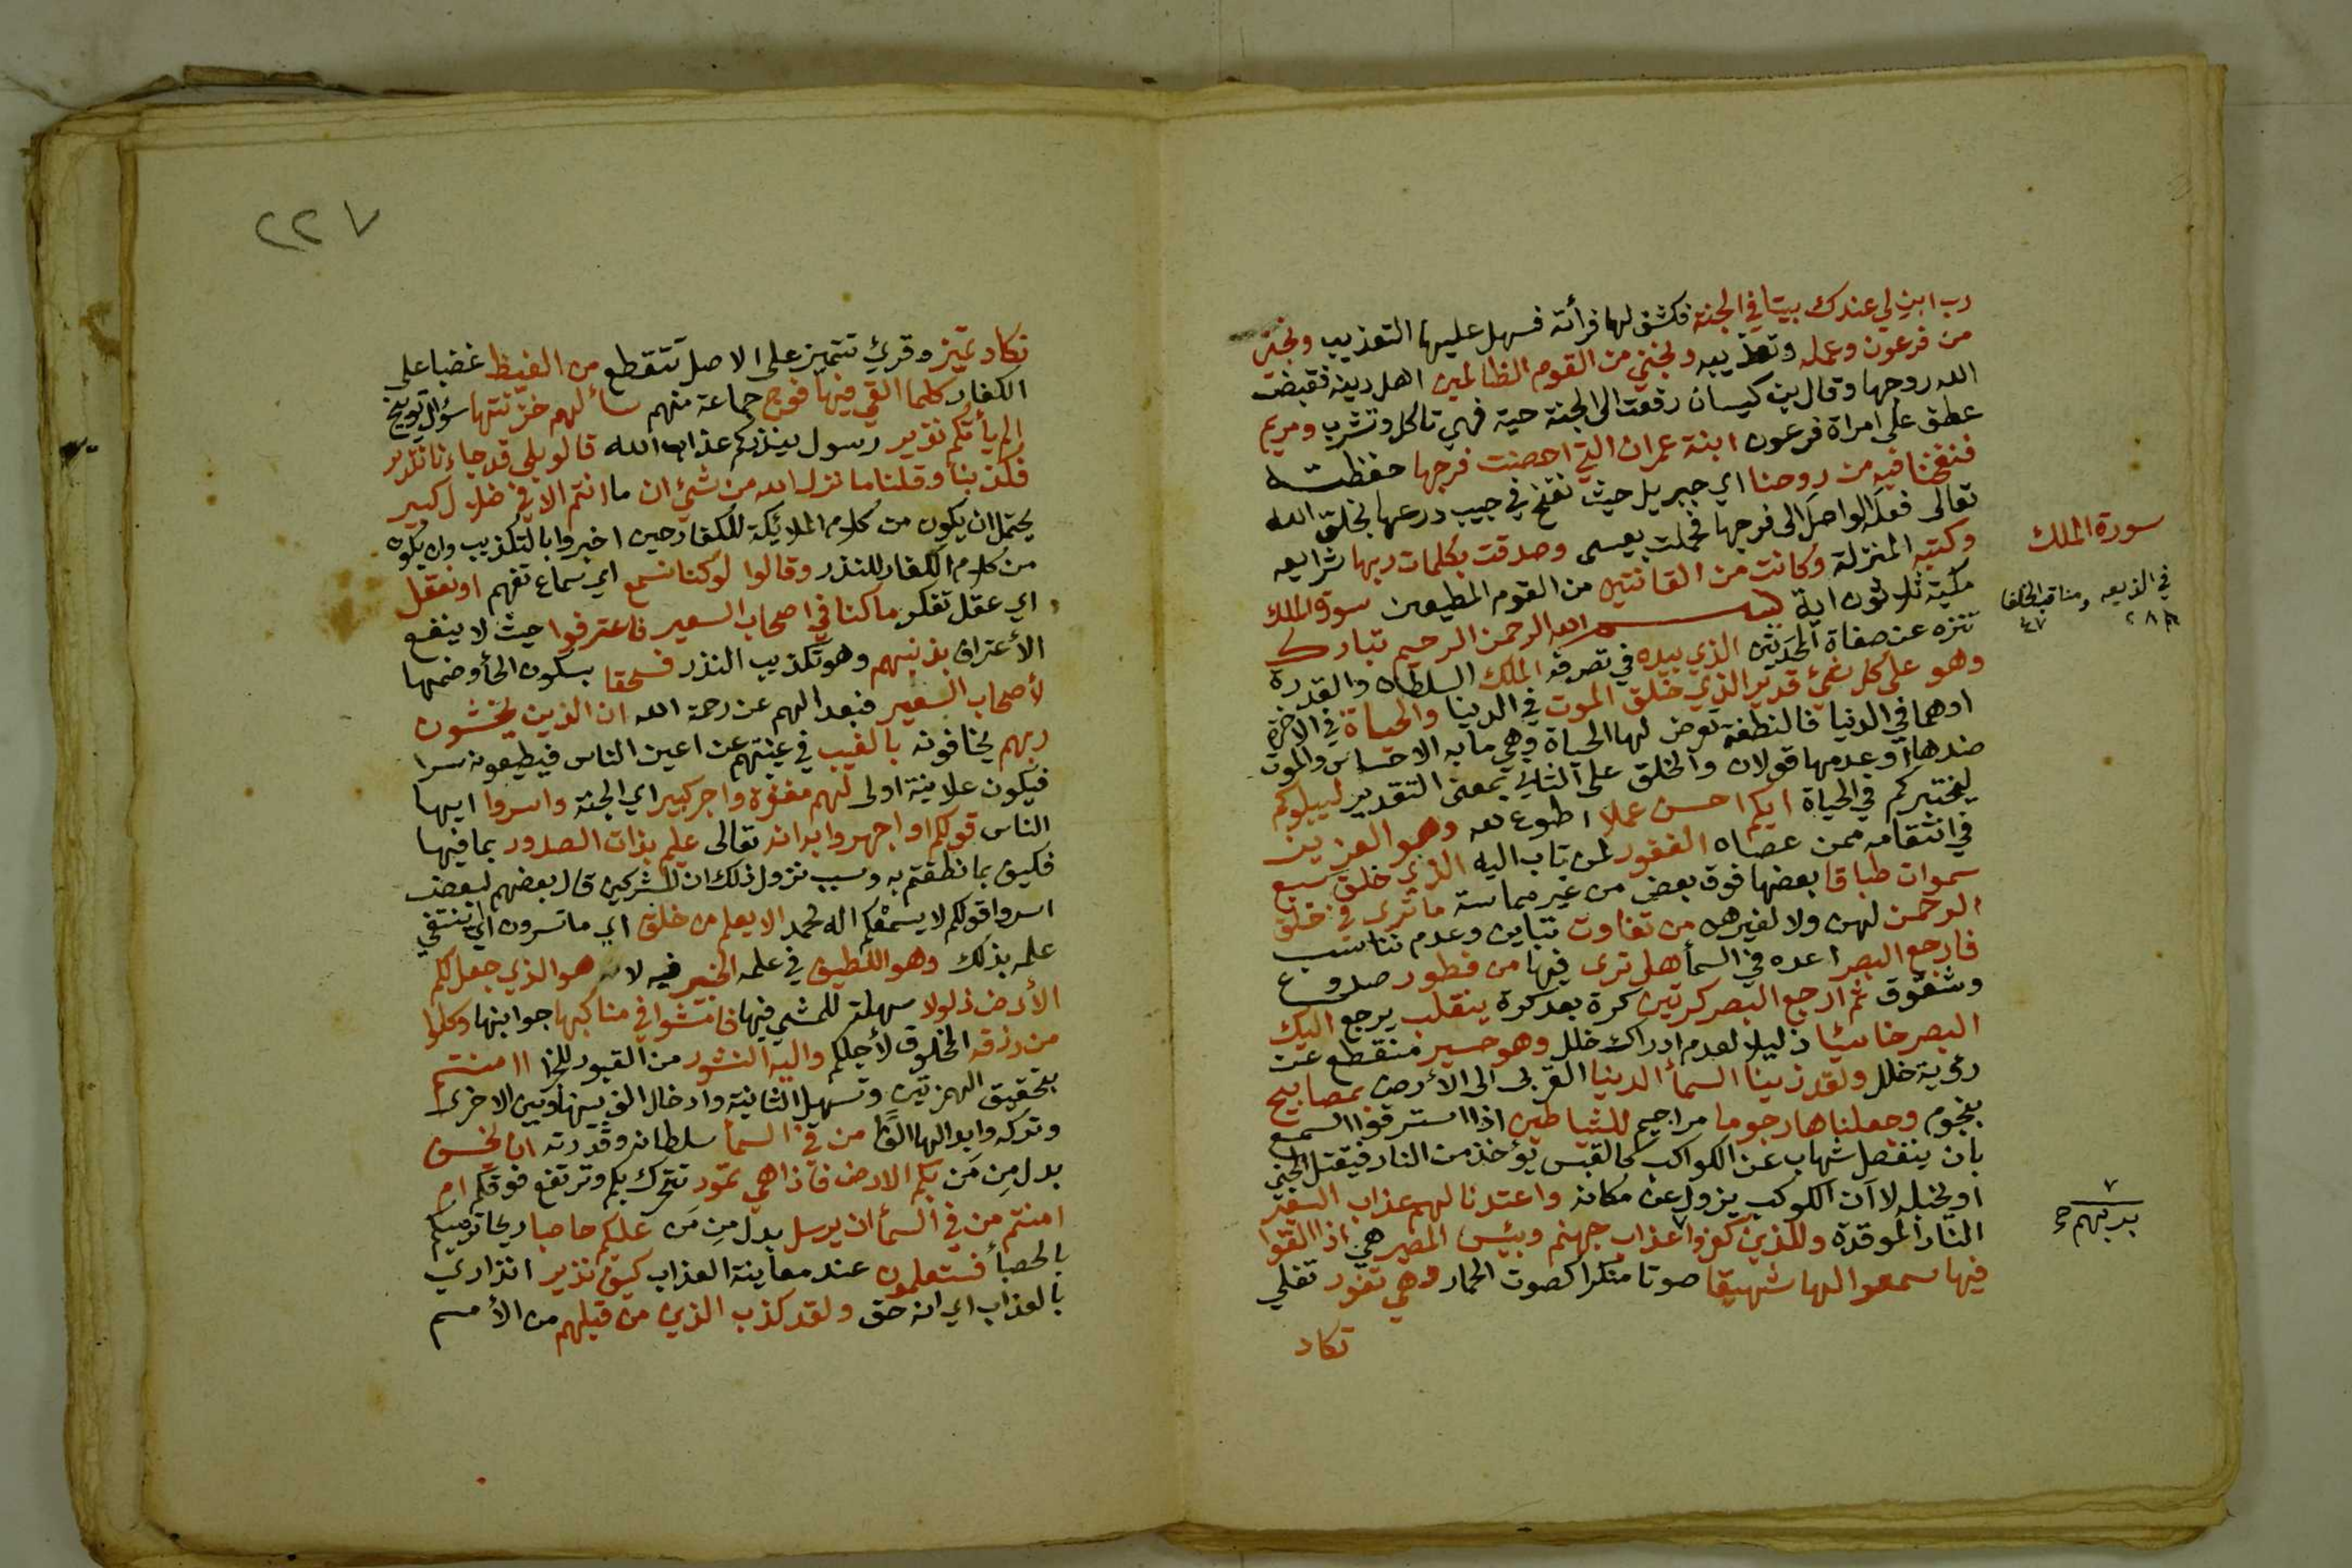 رب ابن لي عندك بيتا في الجنة فكشف لها فرأته فسهل عليها التعذيب ونجني
من فرعون وعمله وتعذيبه ونجني من القوم الظالمين اهل دينه فقبضت
الله روحها وقال بن كيسان رفعت الى الجنة حية فهي تاكل وتشرب ومريم
عطف على امراة فرعون ابنة عمران التي احصنت فرجها حفظته
فنفخنا فيه من روحنا اي جبريل حيث نفخ في جيب درعها بخلق الله
تعالى فعله الواصل الى فرجها فحملت بعيسى وصدقت بكلمات ربها شرايعه
وكتبه المنزلة وكانت من القانتين من القوم المطيعين سورة الملك
مكية ثلاثون اية بسم الله الرحمن الرحيم تبارك
تنزه عن صفاة المحدثين الذي بيده في تصرفه الملك السلطان والقدرة
وهو على كل شيئ قدير الذي خلق الموت في الدنيا والحياة في الاخرة
اوهما في الدنيا فالنطفة تعرض لها الحياة وهي ما به الاحساس والموت
ضدها او عدمها قولان والخلق على الثاني بمعنى التقدير ليبلوكم
ليختبركم في الحياة ايكم احسن عملا اطوع لله وهو العزيز
في انتقامه ممن عصاه الغفور لمن تاب اليه الذي خلق سبع
سموات طباقا بعضها فوق بعض من غير مماسة ما ترى في خلق
الرحمن لهن ولا لغيرهن من تفاوت تباين وعدم تناسب
فارجع البصر اعده في السمأ هل ترى فيها من فطور صدوع
وشقوق ثم ارجع البصر كرتين كرة بعد كرة ينقلب يرجع اليك
البصر خاسئا ذليلا لعدم ادراك خلل وهو حسير منقطع عن
رؤية خلل ولقد زينا السمأ الدنيا القربى الى الأرض بمصابيح
بنجوم وجعلناها رجوما مراجيم للشياطين اذا استرقوا السمع
بان ينفصل شهاب عن الكواكب كالقبس يؤخذ من النار فيقتل الجني
او يخبله لا ان الكوكب يزول عن مكانه واعتدنا لهم عذاب السعير
النار الموقدة وللذين كفروا عذاب جهنم وبئس المصير هي اذا القوا
فيها سمعوا لها شهيقا صوتا منكرا كصوت الحمار وهي تفور تغلي
تكاد
سورة الملك
في الذريعه ومناقب الخلفا
٤٧
٧
بربهم صح
٢٢٧
تكاد تميز وقرئ تتميز على الاصل تتقطع من الغيظ غضبا على
الكفار كلما القي فيها فوج جماعة منهم سألهم خزنتها سؤال توبيخ
الم يأتكم نذير رسول ينذركم عذاب الله قالو بلى قد جاءنا نذير
فكذبنا وقلنا ما نزل الله من شيئ ان ما انتم الا في ضلال كبير
يحتمل ان يكون من كلام الملائكة للكفار حين اخبروا بالتكذيب وان يكون
من كلام الكفار للنذر وقالوا لو كنا نسمع اي سماع تفهم او نعقل
اي عقل تفكر ما كنا في اصحاب السعير فاعترفوا حيث لا ينفع
الأعتراف بذنبهم وهو تكذيب النذر فسحقا بسكون الحأ وضمها
لأصحاب السعير فبعدا لهم عن رحمة الله ان الذين يخشون
ربهم يخافونه بالغيب في غيبتهم عن اعين الناس فيطيعونه سرا
فيكون علانية اولى لهم مغفرة واجر كبير اي الجنة واسروا ايها
الناس قولكم او اجهروا به انه تعالى عليم بذات الصدور بما فيها
فكيف بما نطقتم به وسبب نزول ذلك ان المشركين قال بعضهم لبعض
اسروا قولكم لا يسمعكم اله محمد الا يعلم من خلق اي ما تسرون اي اينتفي
علمه بذلك وهو اللطيف في علمه الخبير فيه لا هو الذي جعل لكم
الأرض ذلولا سهلة للمشي فيها فامشوا في مناكبها جوانبها وكلوا
من رزقه المخلوق لأجلكم واليه النشور من القبور للجزا اامنتم
بتحقيق الهمزتين وتسهيل الثانية وادخال الف بينها وبين الاخرى
وتركه وابدالها الفًا من في السمأ سلطانه وقدرته ان يخسف
بدل مِن مَن بكم الارض فاذا هي تمور تتحرك بكم وترتفع فوقكم ام
امنتم من في السمأ ان يرسل بدل مِن مَن عليكم حاصبا ريحا ترميكم
بالحصبأ فستعلمون عند معاينة العذاب كيف نذير انذاري
بالعذاب اي انه حق ولقد كذب الذين من قبلهم من الأمم